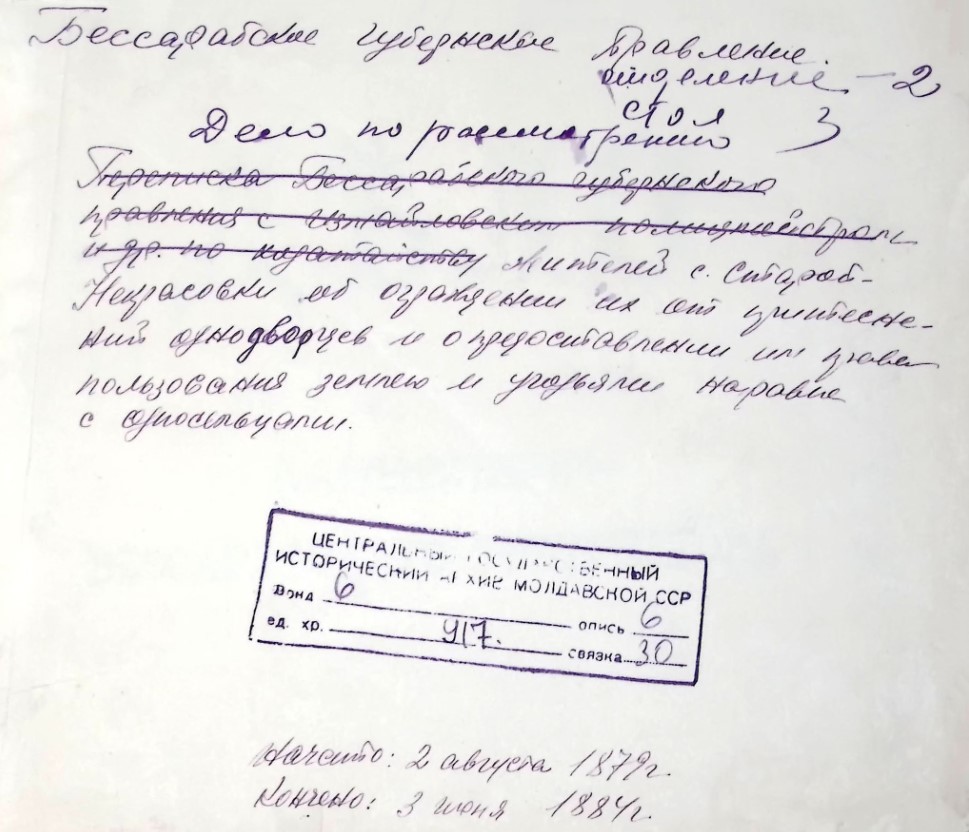 Бессарабское губернское Правление
отделение – 2
стол 3
Дело по рассмотрению
Переписка Бессарабского губернского
правления с измайловским полицмейстером
и др. по ходатайству жителей с. Старой-
Некрасовки об ограждении их от притесне-
ний однодворцев и о предоставлении им права
пользования землею и угодьями наравне
с односельцами.
ЦЕНТРАЛЬНЫЙ ГОСУДАРСТВЕННЫЙ
ИСТОРИЧЕСКИЙ АРХИВ МОЛДАВСКОЙ ССР
Фонд 6 опись 6
ед. хр. 917. связка 30
Начато: 2 августа 1879г.
Кончено: 3 июня 1884г.